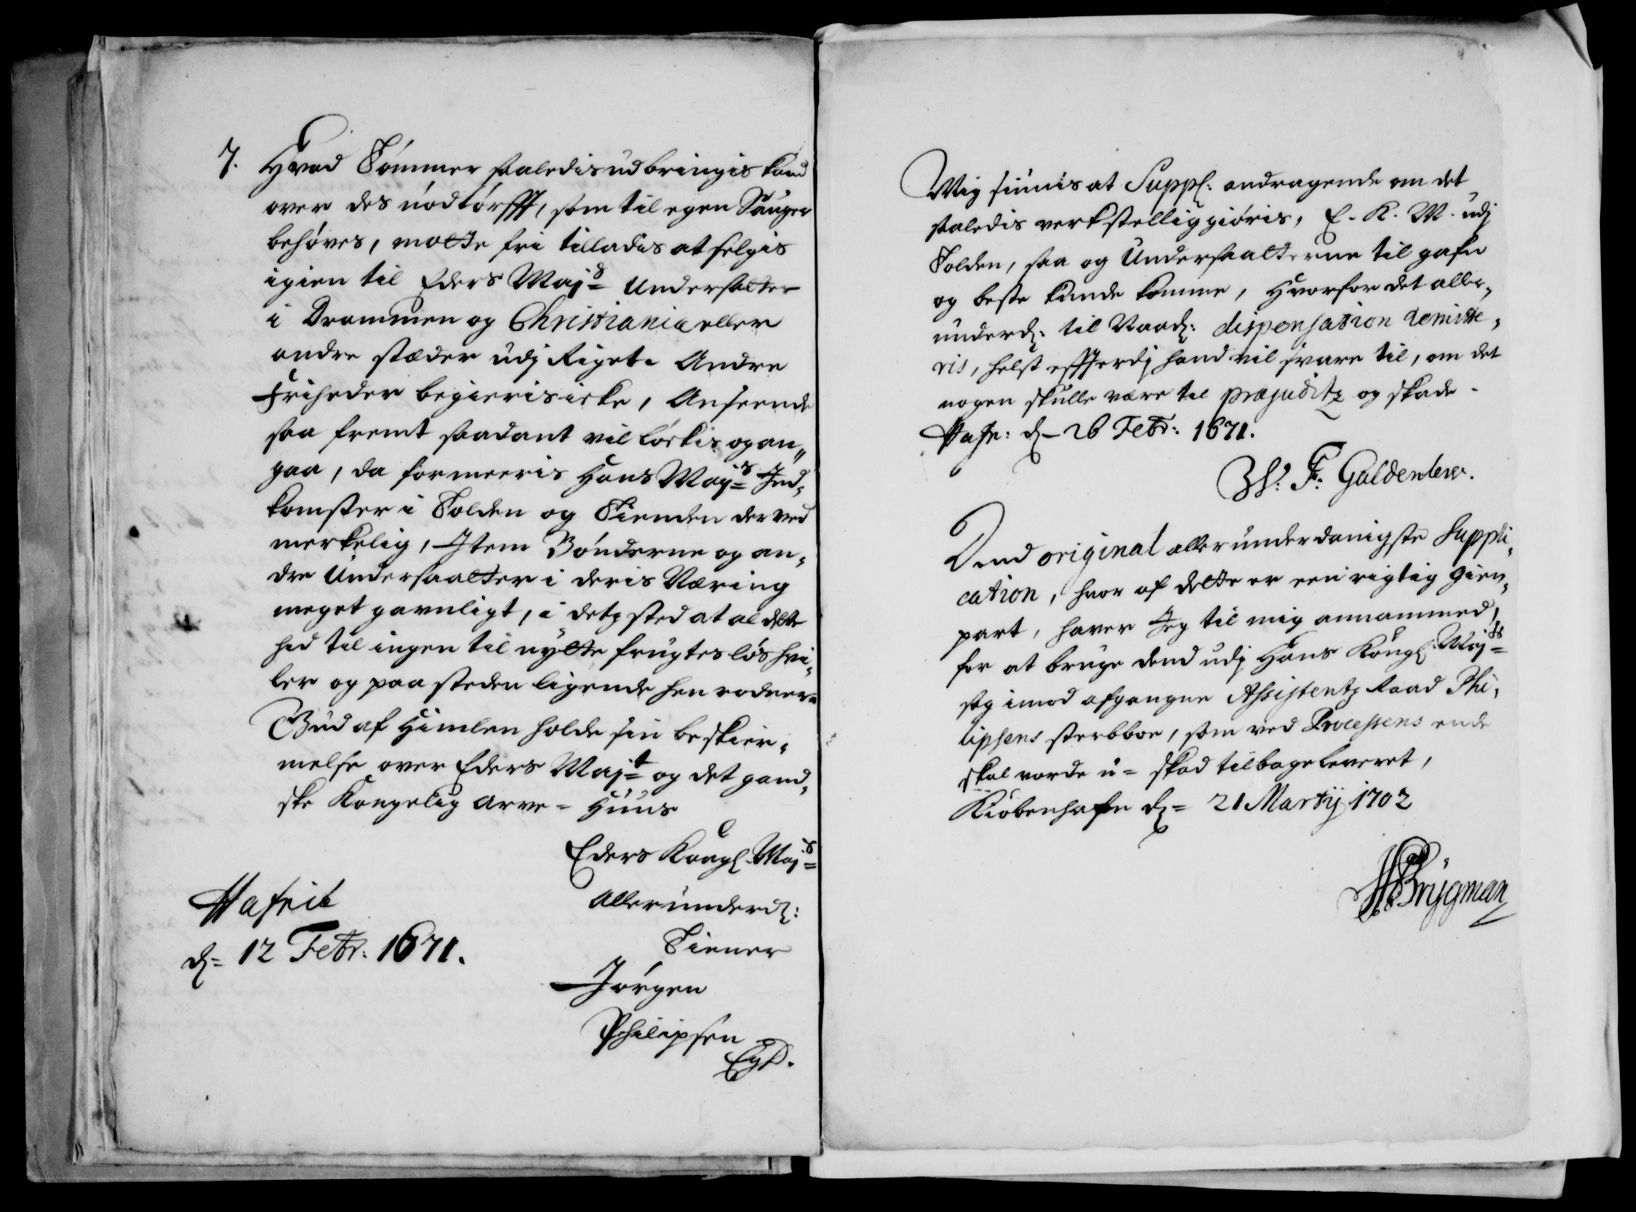 7. Hvad Tømmer saaledis udbringis kand
over des nødtørfft, som til egen Sauger
behøves, motte fri tilladis at selgis
igien til Eders Maj:s Undersatter
i Drammen og Christiania eller
andre stæder udj Riget. Andre
Friheder begieris icke, Anseende
saa fremt saadant vil løckis og an„
gaa, da formeeris Hans Maj:s Ind„
komster i Tolden og Tienden derved
merkelig, Item Bønderne og an„
dre Undersaatter i deris Næring
meget gavnligt, i detz sted at al dette
hid til ingen til nytte frugtesløs hvi„
ler og paa steden ligende hen rodner
Gud af Himlen holde sin beskier„
melse over Eders Maj:t og det gand„
ske Kongelig Arve-Huus
Eders Kongl. Maj:s
Allerunderd:
Tiener
Jørgen
Philipsen
Hafniæ
d= 12 Febr: 1671.
Mig siunis at Suppl: andragende om det
saaledis verkstellig giøris, E. K. M. udj
Tolden, saa og Undersaatterne til gafn
og beste kunde komme, Hvorfor det aller„
underd: til Naad: dispensation remitte„
ris, helst effterdj hand vil svare til, om det
nogen skulle være til præjuditz og skade.
Hafn: d- 26 Febr: 1671.
U: F: Guldenlew.
Dend original allerunderdanigste Suppli„
cation, hvor af dette er een rigtig Gien„
part, haver Jeg til mig annammed,
for at bruge dend udj Hans Kongl: Maj:ts
sag imod afgangne Assistentz Raad Phi„
lipsens sterbboe, som ved Processens ende
skal vorde u-skad tilbage leveret,
Kiøbenhafn d= 21 Martij 1702
Brügman